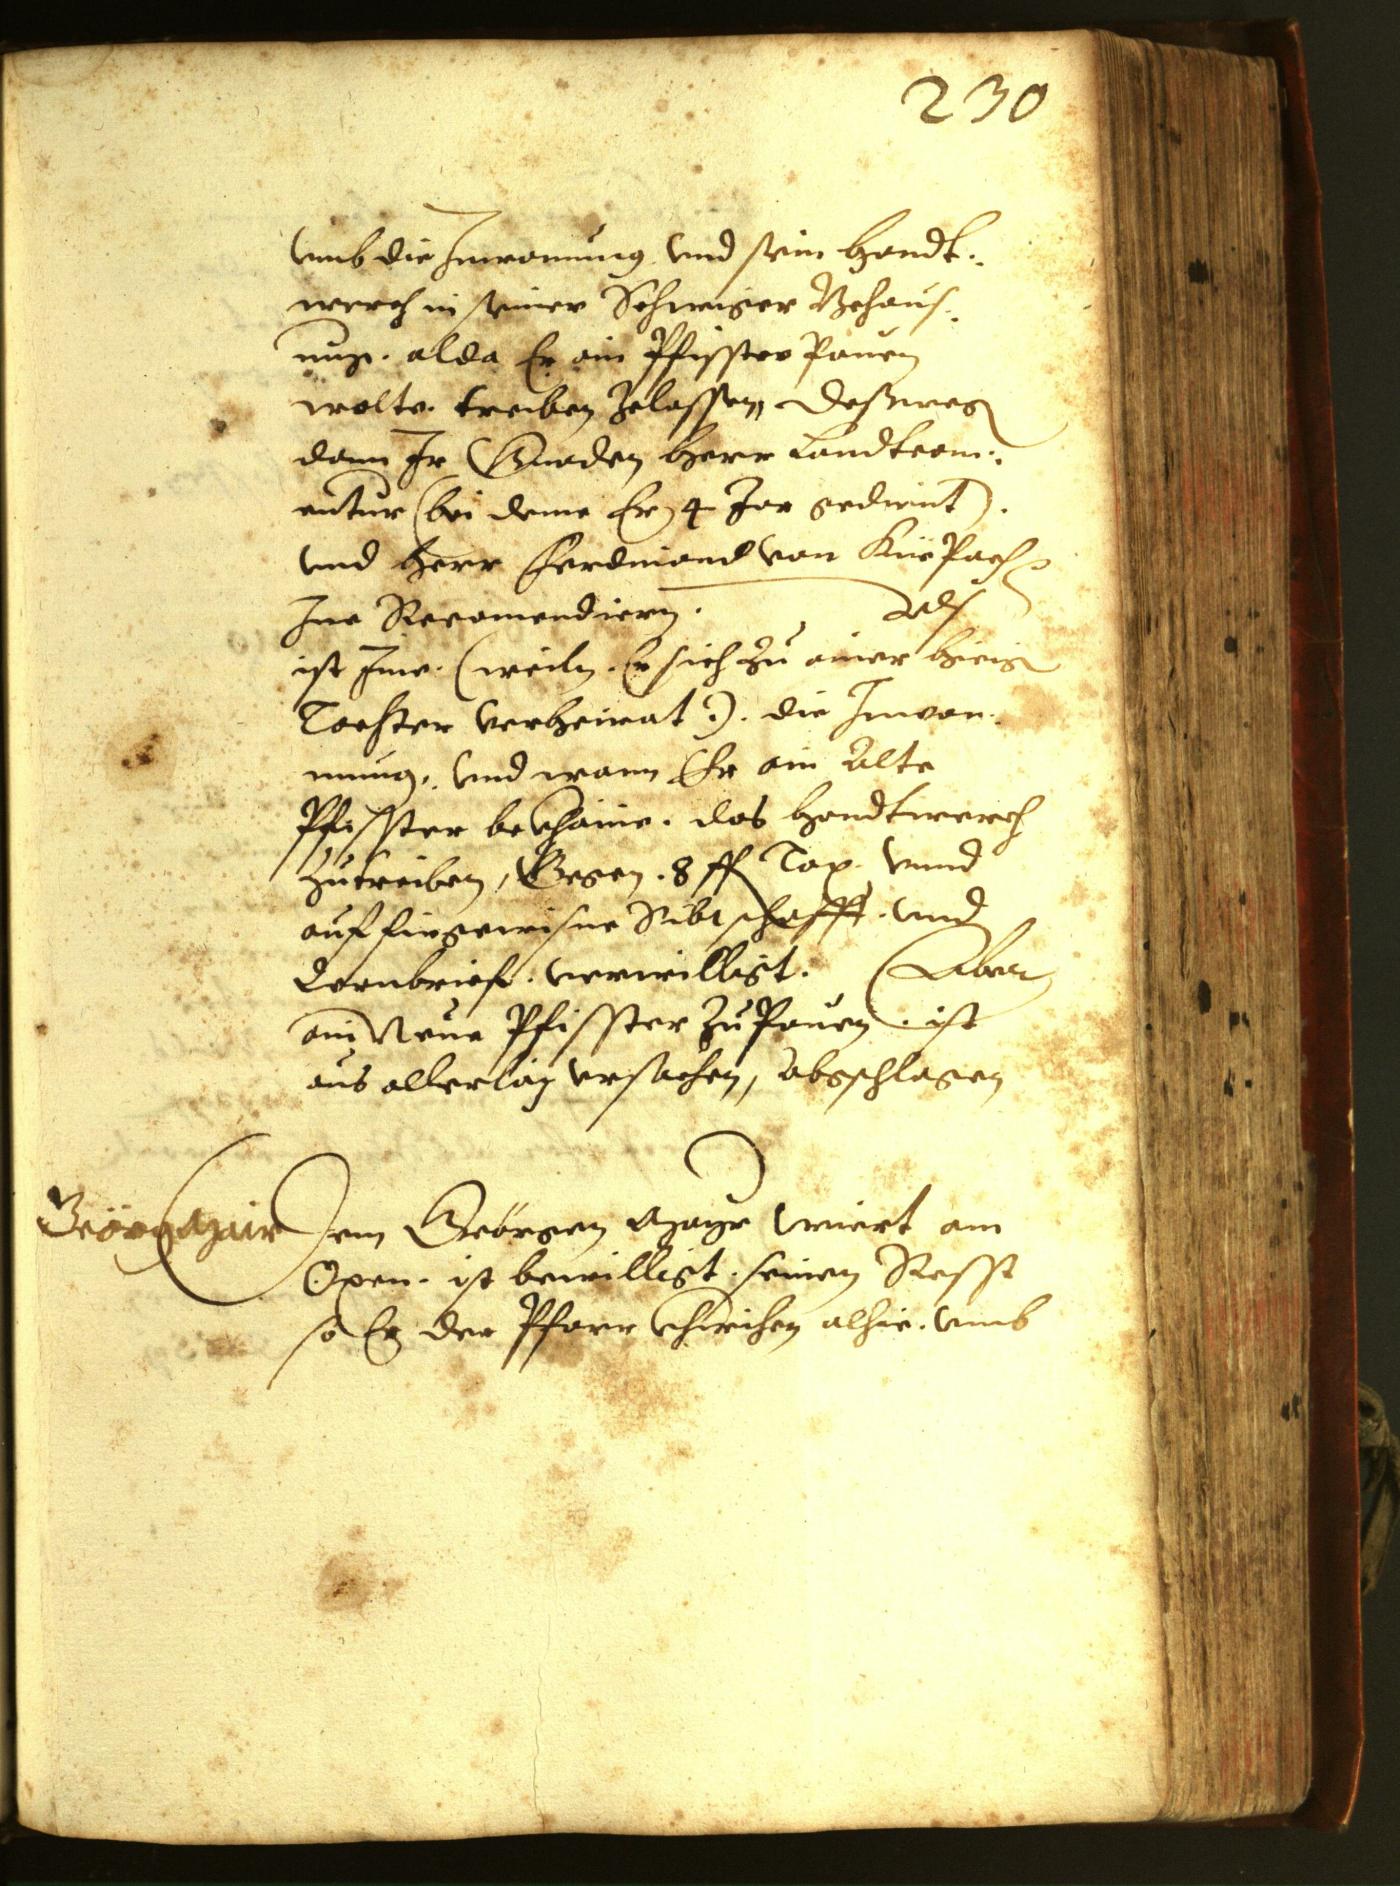 230
vmb die Inwonung vnd sein handt,,
werch in seiner Schwiger Behaus,,
ung. alda Er ain Pfisster Pauen
wolte. treiben Zelassen, deßweg
dann Ir Gnaden herr Landtcom,,
entur (bei deme Er 4 Jar gedient).
vnd herr Ferdinand von KüePach
Ine Recomendiern. Als
ist Ime. (weiln. Er sich zu ainer hieig
Tochter verheirat:). die Inwon,,
nung, vnd wann Er ain Alte
Pfisster bekhäme. das handtwerch
zutreiben, Gegen. 8 ff Tax. vnnd
auf fürgewisne Sibtschafft. vnd
Lernbrief. verwilligt. Aber
ain Neue Pfisster zuPauen. ist
aus allerlay vrsachen, abgschlagen
Geörg Mair
Dem Geörgen Mayr Wiert am
Oxen. ist bewilligt. seinen Resst
so Er der Pfarrkhirchen alhie. vmb